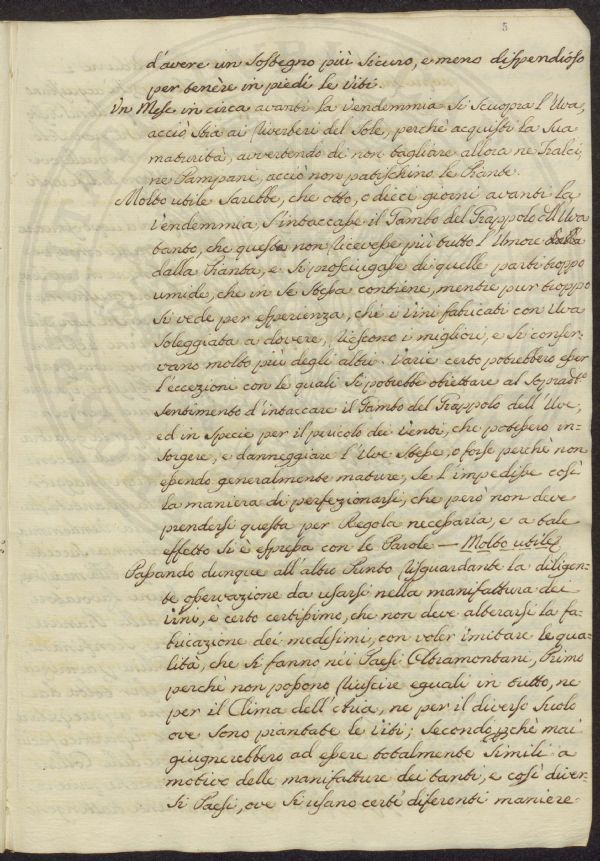 5
d'avere un Sostegno più sicuro, e meno dispendioso
per tenère in piedi le Viti.
Un Mese in circa avanti la Vendemmia si scuopra l'Uva,
acciò stia ai Riverberi del Sole, perchè acquisti la Sua
maturità, avvertendo di non tagliare allora ne Tralci,
ne Pampani, acciò non patischino le Piante.
Molto utile Sarebbe, che otto, o dieci giorni avanti la
Vendemmia, S'intaccasse il Gambo del Grappolo dell'Uva
tanto, che questa non Ricevesse più tutto l'Umore
dalla Pianta, e Si prosciugasse di quelle parti troppo
umide, che in Se Stessa contiene, mentre pur troppo
Si vede per esperienza, che i Vini fabricati con Uva
Soleggiata a dovere, Riescono i migliori, e Si conser-
vano molto più degli altri. Varie certo potrebbero esser
l'eccezioni con le quali Si potrebbe obiettare al Sopradto.
Sentimento d'intaccare il Gambo del Grappolo dell'Uve,
ed in Specie per il pericolo dei Venti, che potessero in-
sorgere, e danneggiare l'Uve Stesse, o forse perchè non
essendo generalmente mature, Se l'impedisse così
la maniera di perfezionarsi, che però non deve
prendersi questa per Regola necessaria, e a tale
effetto Si è espressa con le Parole — Molto utile
Passando dunque all'altro Punto Risguardante la diligen-
te osservazione da usarsi nella manifattura dei
Vini, è certo certissimo, che non deve alterarsi la fa-
bricazione dei medesimi, con voler imitare le qua-
lità, che Si fanno nei Paesi Oltramontani, Primo
perchè non possono Riuscire eguali in tutto, ne
per il Clima dell'Aria, ne per il diverso Suolo
ove Sono piantate le Viti; Secondo perchè mai
giugnerebbero ad essere totalmente Simili a
motivo delle manifatture dei tanti, e così diver-
si Paesi, ove Si usano certe diferenti maniere